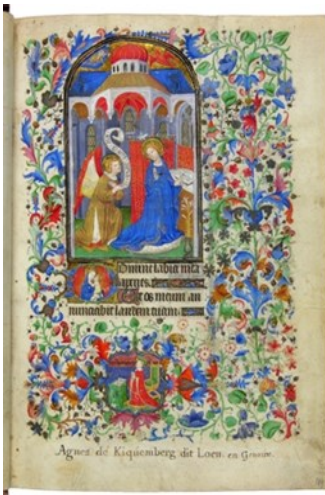 Domine labia mea
aperies.
Et os meum an
nunciabit laudem tuam.
Agnes de Kiquemberg dit Loen. en Gravure.